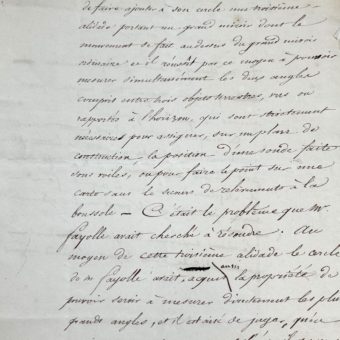 de faire ajouter à son cercle une troisième
alidade portant un grand miroir dont le
mouvement se fait au dessus du grand miroir
ordinaire et il réussit par ce moyen à pouvoir
mesurer simultanément les deux angles
compris entre trois objets terrestres, vus ou
rapportés à l'horizon, qui sont strictement
nécessaires pour assigner, sur un plan de
construction la position d'une sonde faite
sous voiles, ou pour faire le point sur une
carte sans le secours de relèvements à la
boussole — C'était le problème que Mr
fayolle avait cherché à résoudre. Au
moyen de cette troisième alidade le cercle
de mr fayolle avait acquis aussi la propriété de
pouvoir servir à mesurer directement les plus
grands angles, et il est aisé de juger, qu'une